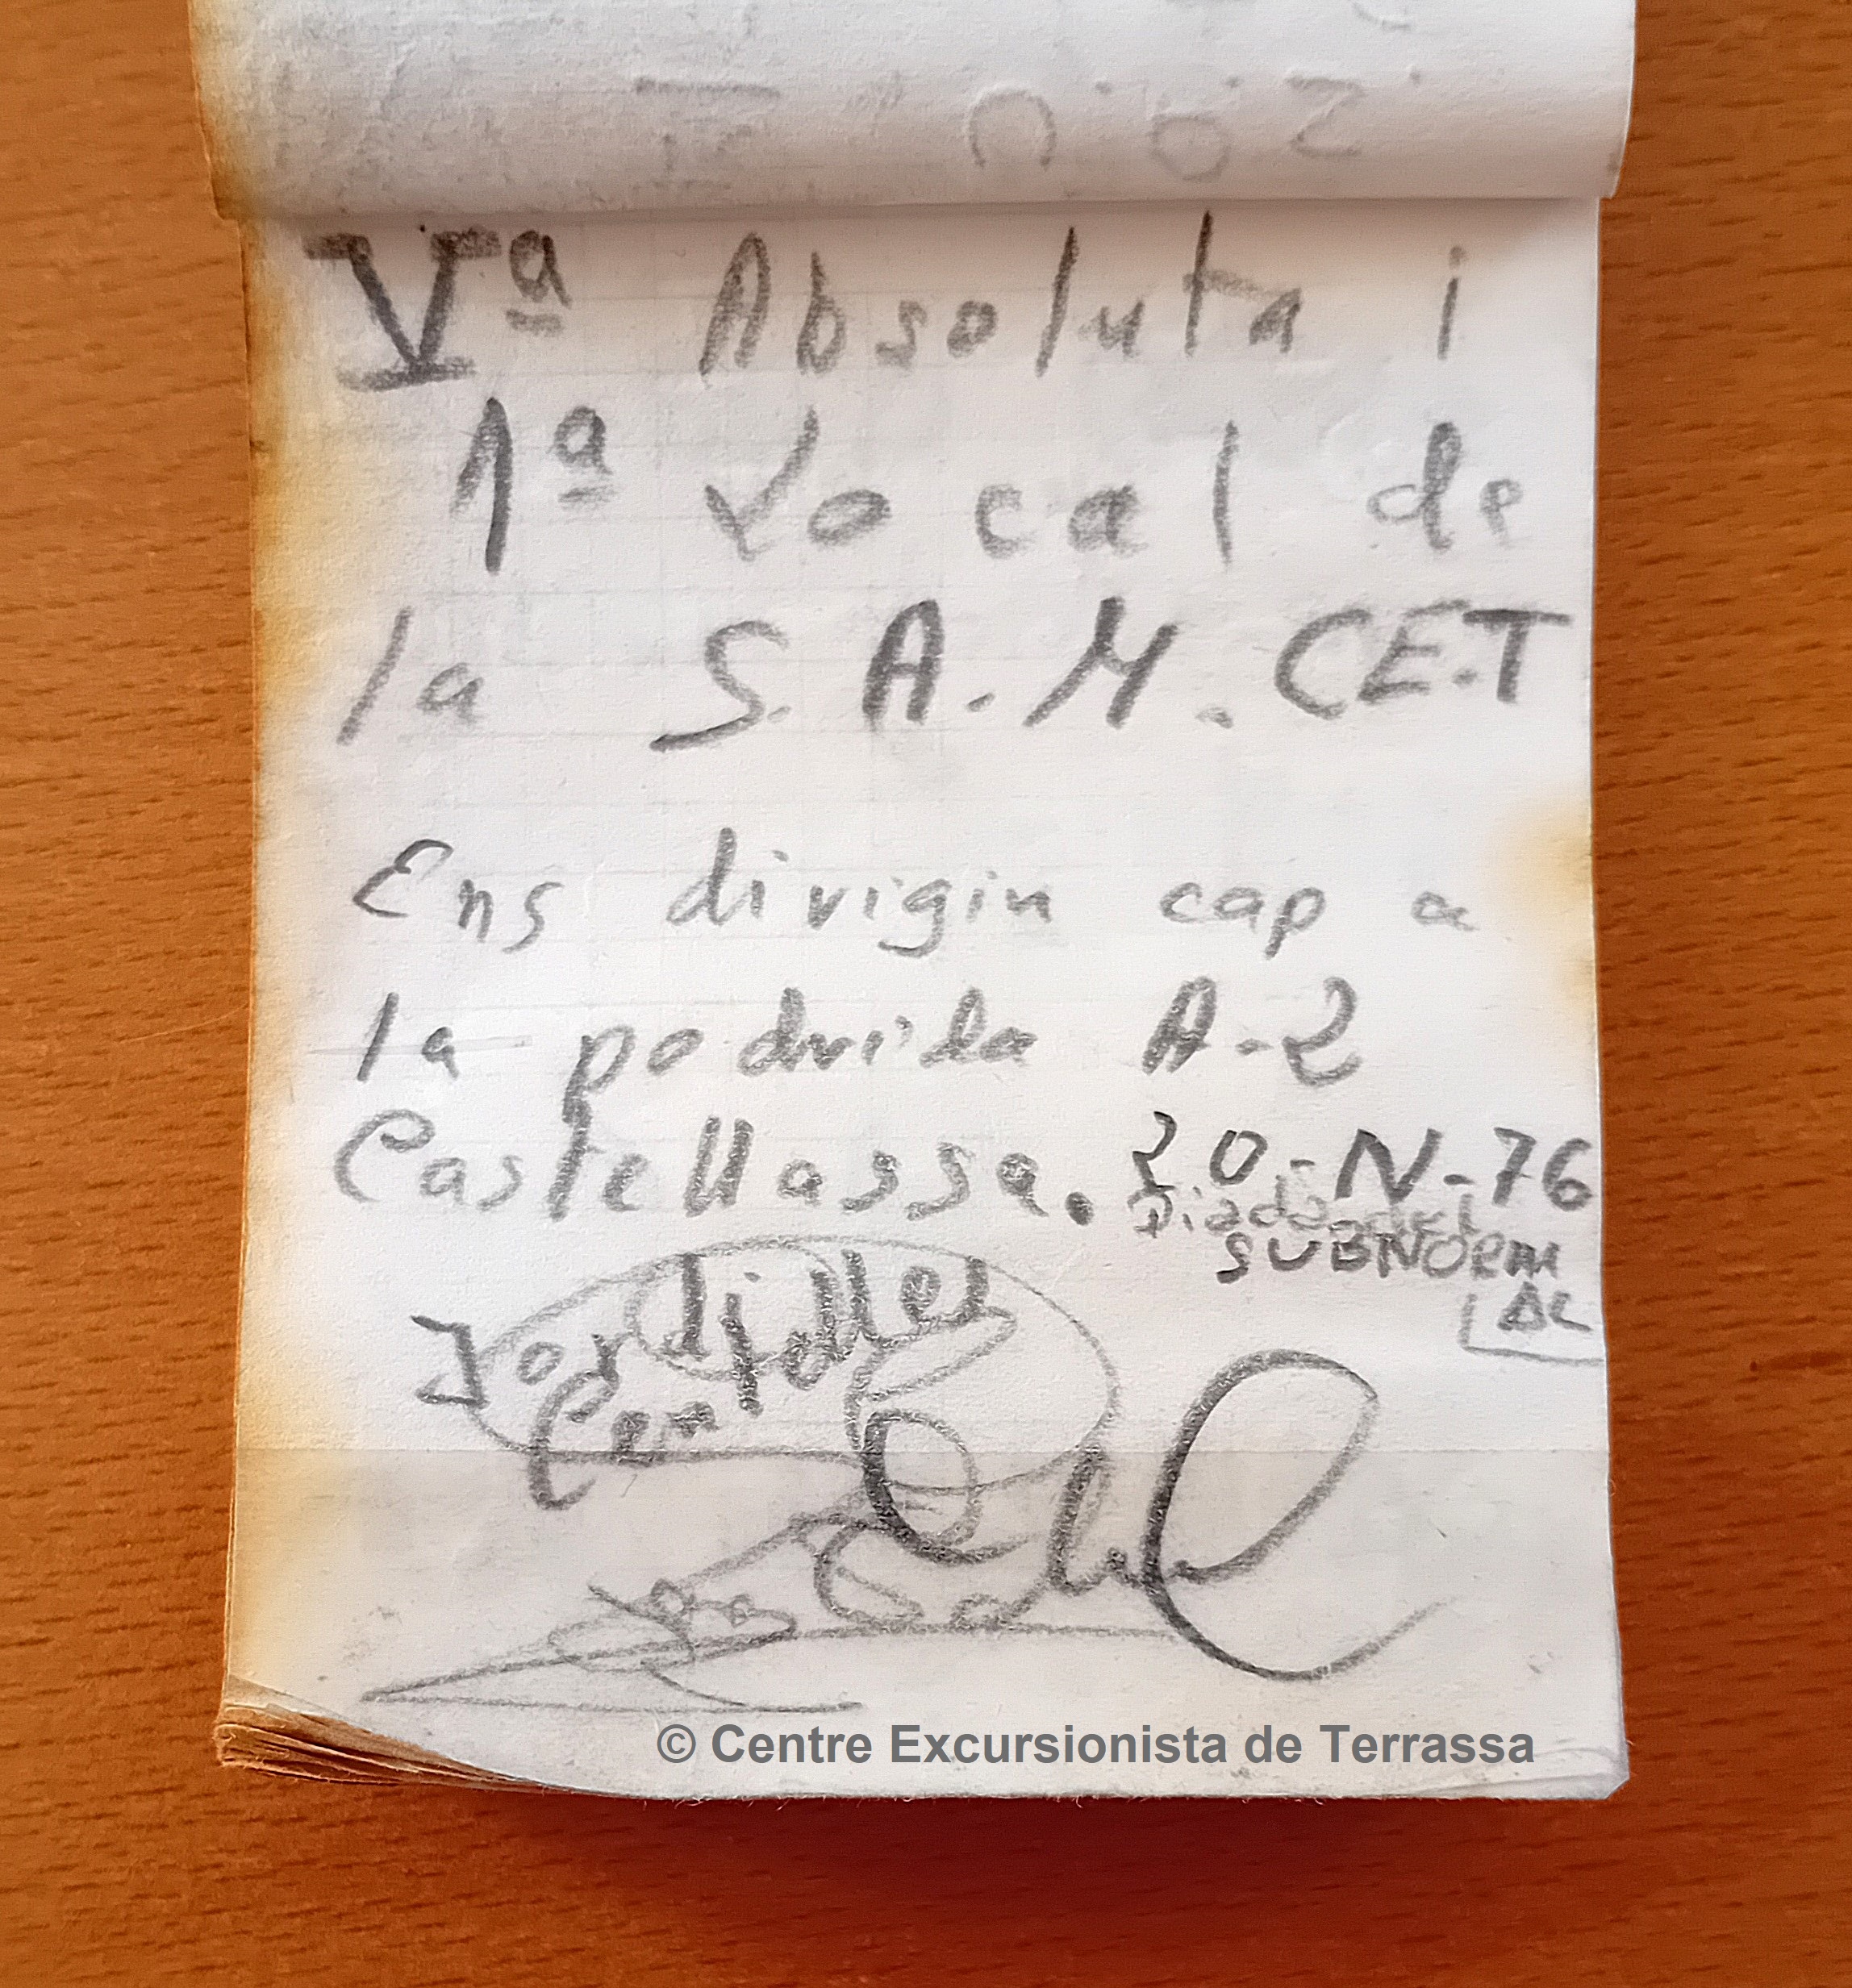 Vª Absoluta i
1ª Local de
la S.A.M. CE.T
Ens divigin cap a
la podrida A-2
Castellassa. 20-N-76
Diada del
SUBNORM
AL
Jordi
Canjelles
© Centre Excursionista de Terrassa